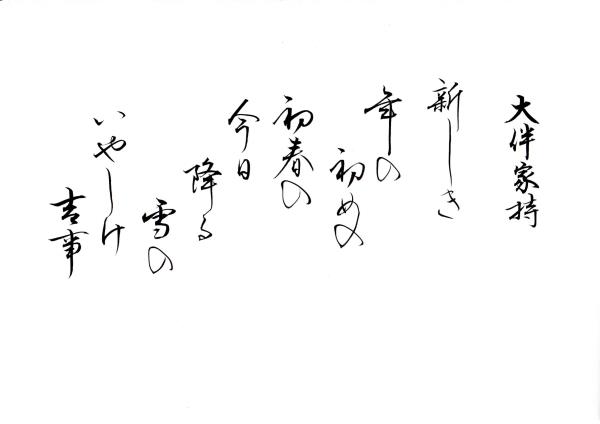 大伴家持
新しき
年の
初めの
初春の
今日
降る
雪の
いやしけ
吉事